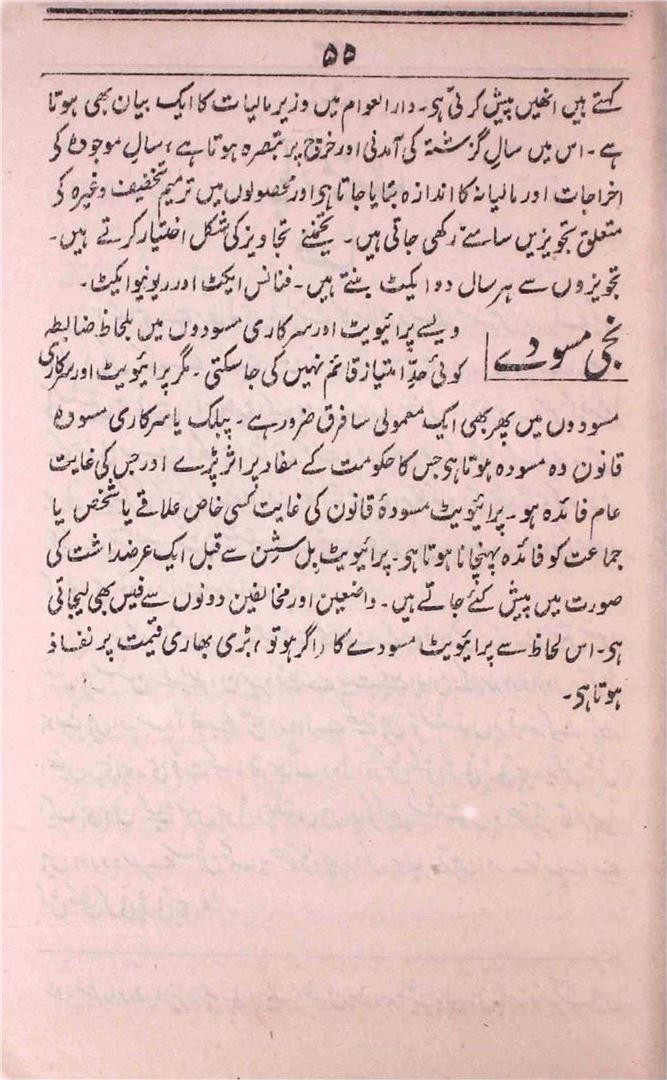 ۵۵
کہتے ہیں انھیں پیش کرتی ہی۔ دار العوام میں وزیر مالیات کا ایک بیان بھی ہوتا
ہے۔ اس میں سالِ گزشتہ کی آمدنی اور خروج پر تبصرہ ہوتا ہے، سالِ موجودہ کی
اخراجات اور مالیانہ کا اندازہ بتایا جاتا ہی اور محصولوں میں ترمیم تخفیف وغیرہ کی
متعلق تجویزیں سامنے رکھی جاتی ہیں۔ تخمینے تجاویز کی شکل اختیار کرتے ہیں۔
تجویزوں سے ہر سال دو ایکٹ بنتے ہیں۔ فنانس ایکٹ اور ریونیو ایکٹ۔
نجی مسودے
ویسے پرائیویٹ اور سرکاری مسودوں میں بلحاظ ضابطہ
کوئی حدِّ امتیاز قائم نہیں کی جا سکتی۔ مگر پرائیویٹ اور سرکاری
مسودوں میں پھر بھی ایک معمولی سا فرق ضرور ہے۔ پبلک یا سرکاری مسودہ
قانون وہ مسودہ ہوتا ہی جس کا حکومت کے مفاد پر اثر پڑے اور جس کی غایت
عام فائدہ ہو۔ پرائیویٹ مسودۂ قانون کی غایت کسی خاص علاقے یا شخص یا
جماعت کو فائدہ پہنچانا ہوتا ہی۔ پرائیویٹ بل سشن سے قبل ایک عرضداشت کی
صورت میں پیش کئے جاتے ہیں۔ واضعین اور مخالفین دونوں سے فیس بھی لیجاتی
ہی۔ اس لحاظ سے پرائیویٹ مسودے کا (اگر ہو تو) بڑی بھاری قیمت پر نفاذ
ہوتا ہی۔